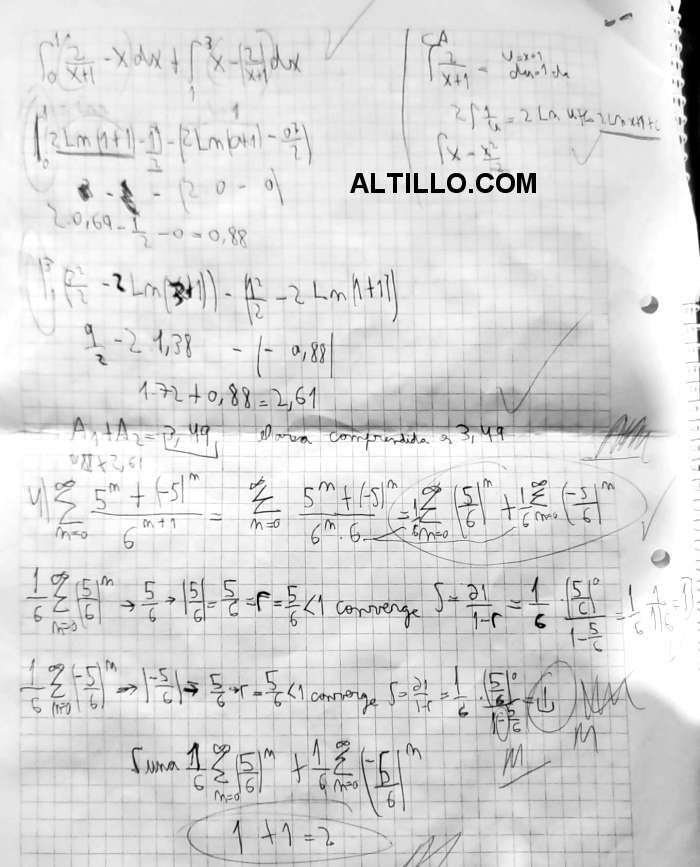 ∫₀¹ (2/(x+1) - x) dx + ∫₁³ x - (2/(x+1)) dx
CA
∫ 2/(x+1) = u=x+1
du=1 dx
2∫ 1/u = 2 Ln u + = 2 Ln x+1 + c
∫x = x²/2
|₀¹ (2 Ln(1+1) - 1²/2) - (2 Ln(0+1) - 0²/2)
- (2 0 - 0)
ALTILLO.COM
2 · 0,69 - 1/2 - 0 = 0,88
|₁³ (3²/2 - 2 Ln(3+1)) - (1²/2 - 2 Ln(1+1))
9/2 - 2 1,38 - (-0,88)
1.72 + 0,88 = 2,61
A₁ + A₂ = 3,49 El area comprendida es 3,49
0,88 + 2,61
4) ∑_{n=0}^∞ (5ⁿ + (-5)ⁿ)/6ⁿ⁺¹ = ∑_{n=0}^∞ (5ⁿ + (-5)ⁿ)/(6ⁿ · 6) = 1/6 ∑_{n=0}^∞ (5/6)ⁿ + 1/6 ∑_{n=0}^∞ (-5/6)ⁿ
1/6 ∑_{n=0}^∞ (5/6)ⁿ → 5/6 → |5/6| = 5/6 = r = 5/6 < 1 converge S = a1/(1-r) = 1/6 · (5/6)⁰/(1-5/6) = 1/6 · 1/(1/6) = 1
1/6 ∑_{n=0}^∞ (-5/6)ⁿ → |-5/6| → 5/6 → r = 5/6 < 1 converge S = a1/(1-r) = 1/6 · (5/6)⁰/(1-5/6) = 1
M
M
Suma 1/6 ∑_{n=0}^∞ (5/6)ⁿ + 1/6 ∑_{n=0}^∞ (-5/6)ⁿ
1 + 1 = 2